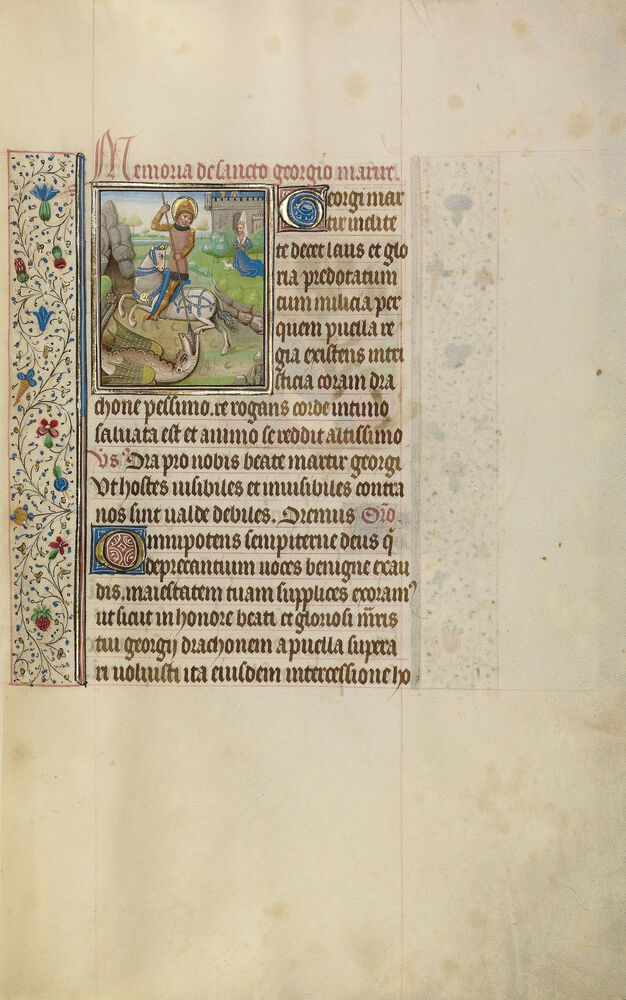 Memoria de sancto georgio martire.
Georgi mar
tir inclite
te decet laus et glo
ria predotatum
cum milicia per
quem puella re
gia existens in tri
sticia coram dra
chone pessimo. te rogans corde intimo
saluata est et animo se reddit altissimo
Vs Ora pro nobis beate martir georgi
Vt hostes uisibiles et inuisibiles contra
nos sint ualde debiles. Oremus Oro.
Omnipotens sempiterne deus q̄
deprecantium uoces benigne exau
dis. maiestatem tuam supplices exoram⁹
ut sicut in honore beati et gloriosi m̄ris
tui georgij drachonem a puella supera
ri uoluisti ita eiusdem intercessione ho